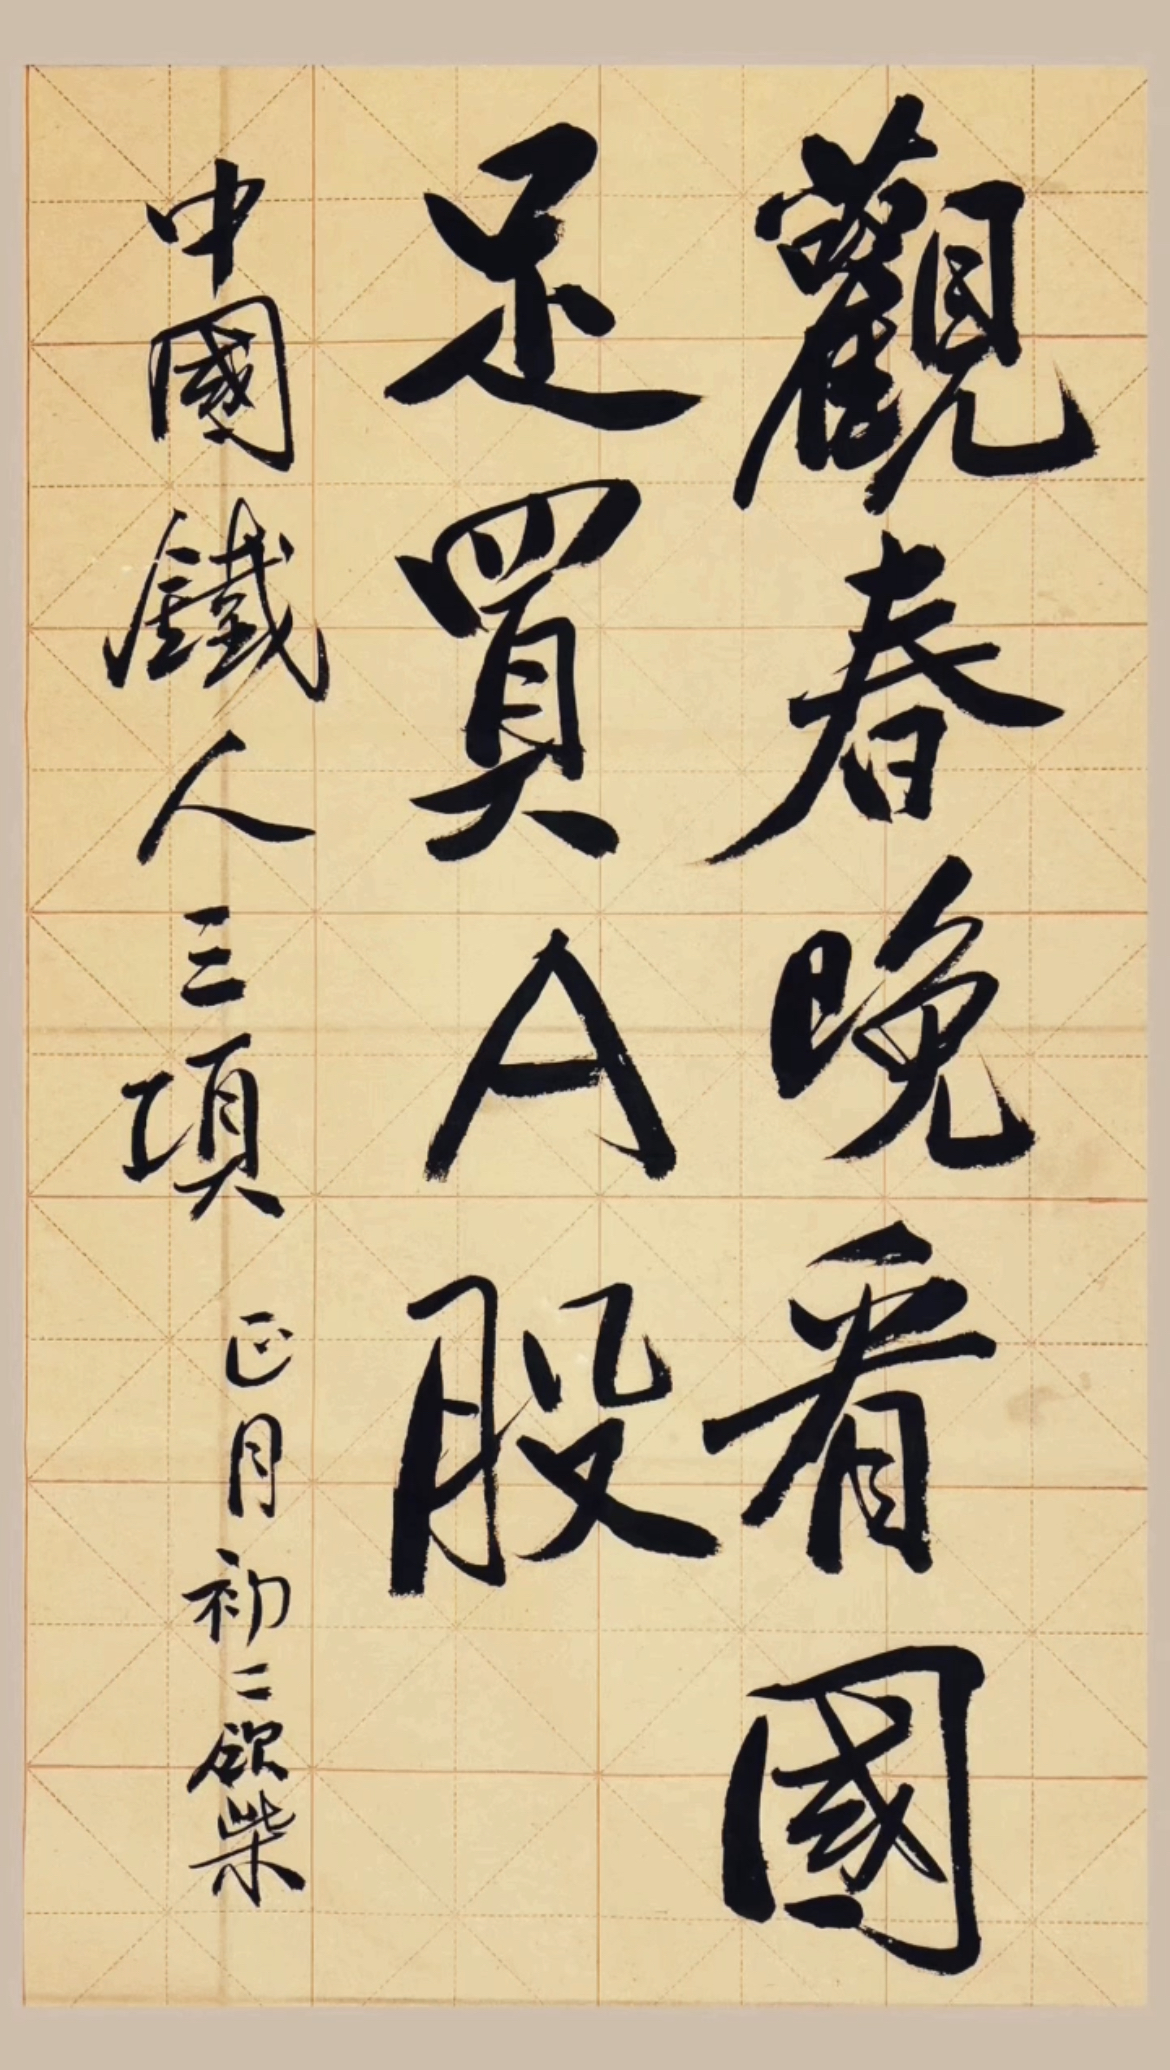 觀春晚看國
足買A股
中國鐵人三項
正月初二劈柴